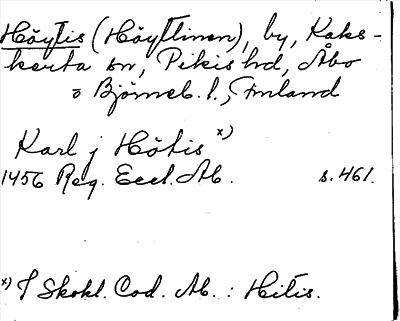 Höytis (Höyttinen), by, Kaks-
kerta sn, Pikis hd, Åbo
o Björneb. l., Finland
Karl j Hötis x)
1456 Reg. Eccl. Ab. s. 461.
x) I Skokl. Cod. Ab. : Hitis.